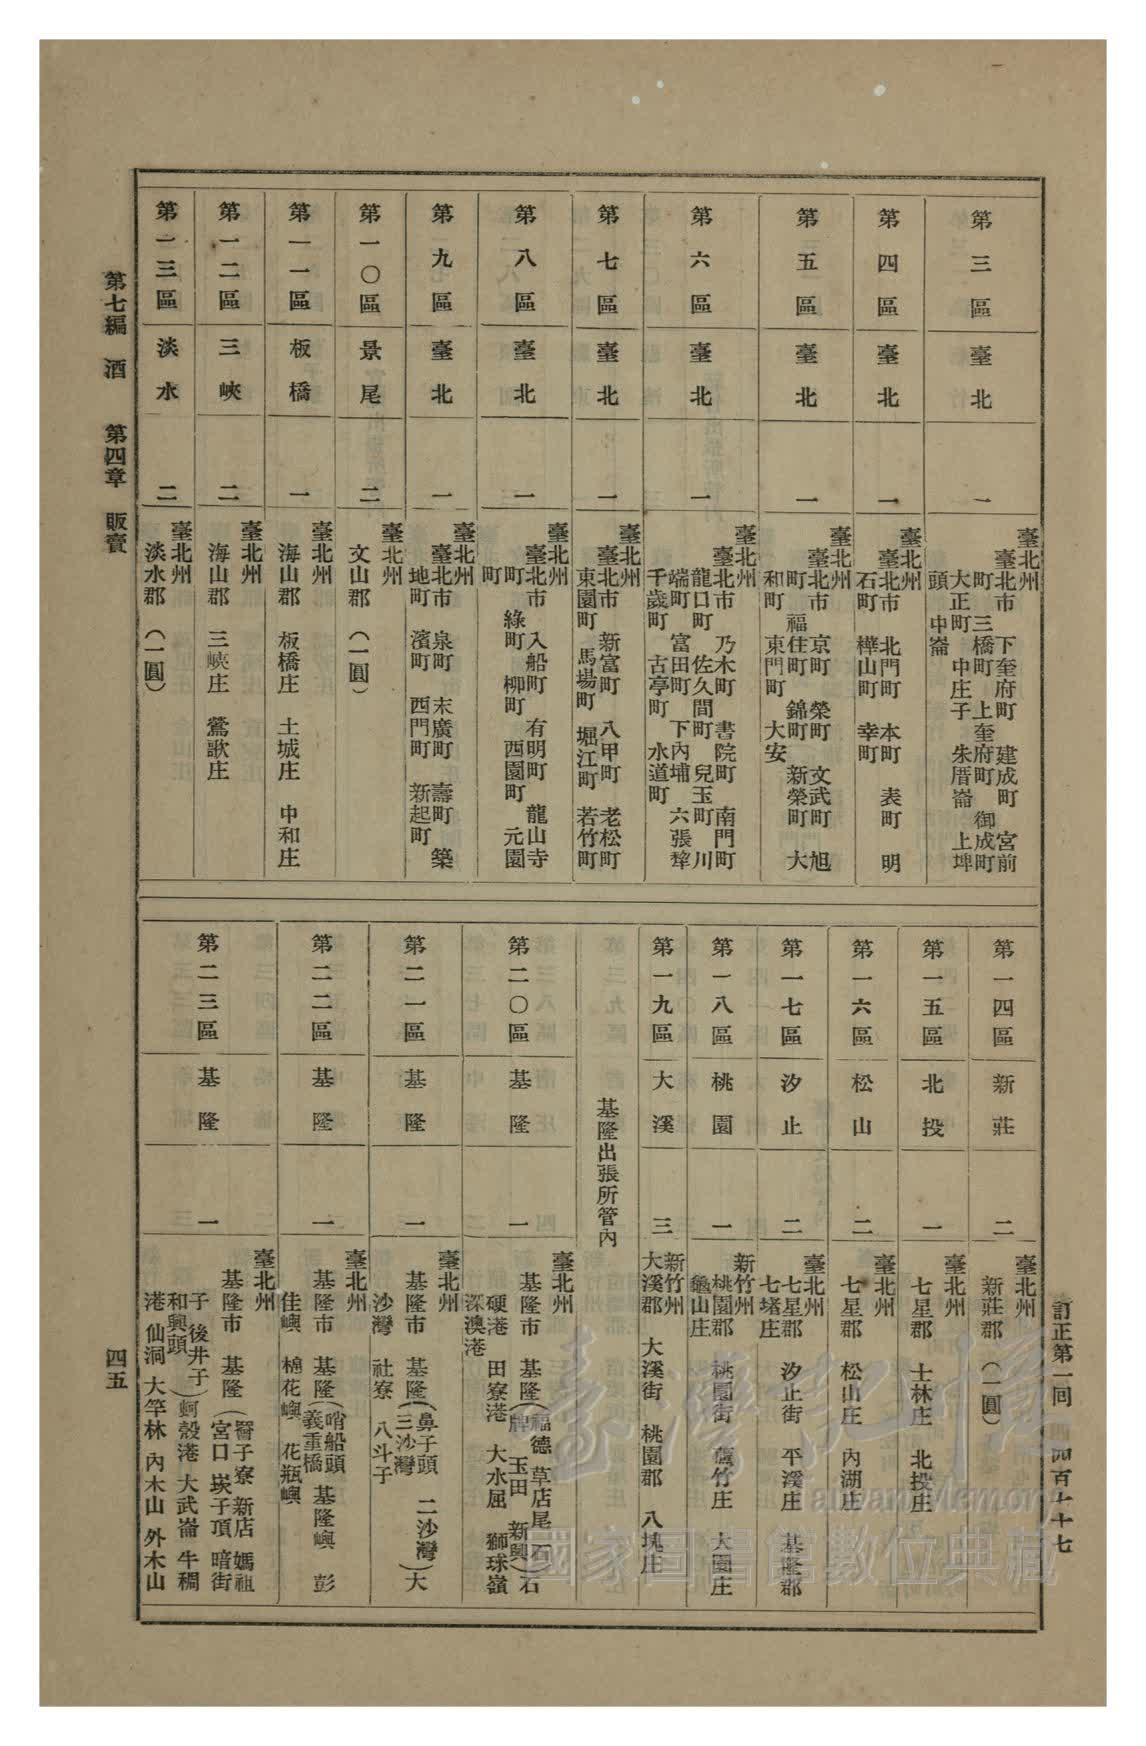 訂正第一回
第三區 臺北 一
臺北州
臺北市 下奎府町 建成町 宮前
町 三橋町 上奎府町 御成町
大正町 中庄子 朱厝崙 上埤
頭 中崙
第四區 臺北 一
臺北州
臺北市 北門町 本町 表町 明
石町 樺山町 幸町
第五區 臺北 一
臺北州
臺北市 京町 榮町 文武町 旭
町 福住町 錦町 新榮町 大
和町 東門町 大安
第六區 臺北 一
臺北州
臺北市 乃木町 書院町 南門町
龍口町 佐久間町 兒玉町 川
端町 富田町 下內埔 六張犂
千歲町 古亭町 水道町
第七區 臺北 一
臺北州
臺北市 新富町 八甲町 老松町
東園町 馬場町 堀江町 若竹町
第八區 臺北 一
臺北州
臺北市 入船町 有明町 龍山寺
町 綠町 柳町 西園町 元園
町
第九區 臺北 一
臺北州
臺北市 泉町 末廣町 壽町 築
地町 濱町 西門町 新起町
第一〇區 景尾 二
臺北州
文山郡 (一圓)
第一一區 板橋 一
臺北州
海山郡 板橋庄 土城庄 中和庄
第一二區 三峽 二
臺北州
海山郡 三峽庄 鶯歌庄
第一三區 淡水 二
臺北州
淡水郡 (一圓)
第一四區 新莊 二
臺北州
新莊郡 (一圓)
第一五區 北投 一
臺北州
七星郡 士林庄 北投庄
第一六區 松山 二
臺北州
七星郡 松山庄 內湖庄
第一七區 汐止 二
臺北州
七星郡 汐止街 平溪庄 基隆郡
七堵庄
第一八區 桃園 一
新竹州
桃園郡 桃園街 蘆竹庄 大園庄
龜山庄
第一九區 大溪 三
新竹州
大溪郡 大溪街 桃園郡 八塊庄
基隆出張所管內
第二〇區 基隆 一
臺北州
基隆市 基隆(福德 草店尾 石
牌 玉田 新興)石
硬港 田寮港 大水屈 獅球嶺
深澳港
第二一區 基隆 一
臺北州
基隆市 基隆(鼻子頭 二沙灣
三沙灣)大
沙灣 社寮 八斗子
第二二區 基隆 一
臺北州
基隆市 基隆(哨船頭
義重橋 基隆嶼 彭
佳嶼 棉花嶼 花瓶嶼
第二三區 基隆 一
臺北州
基隆市 基隆(
子寮 新店 媽祖
宮口 崁子頂 暗街
子 後井子)蚵殼港 大武崙 牛稠
和興頭
港 仙洞 大竿林 內木山 外木山
第七編 酒 第四章 販賣
四五
臺灣記憶
Taiwan Memory
國家圖書館數位典藏